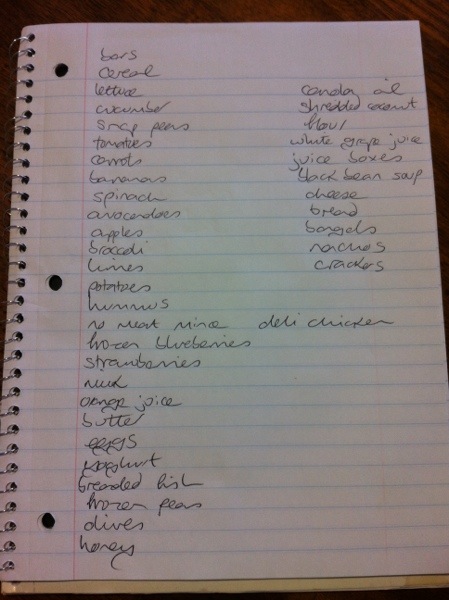 bars
cereal
lettuce
cucumber
snap peas
tomatoes
carrots
bananas
spinach
avocadoes
apples
broccoli
limes
potatoes
hummus
no meat mince deli chicken
frozen blueberries
strawberries
milk
orange juice
butter
eggs
yoghurt
breaded fish
frozen peas
olives
honey
canola oil
shredded coconut
flour
white grape juice
juice boxes
black bean soup
cheese
bread
bangels
nachos
crackers